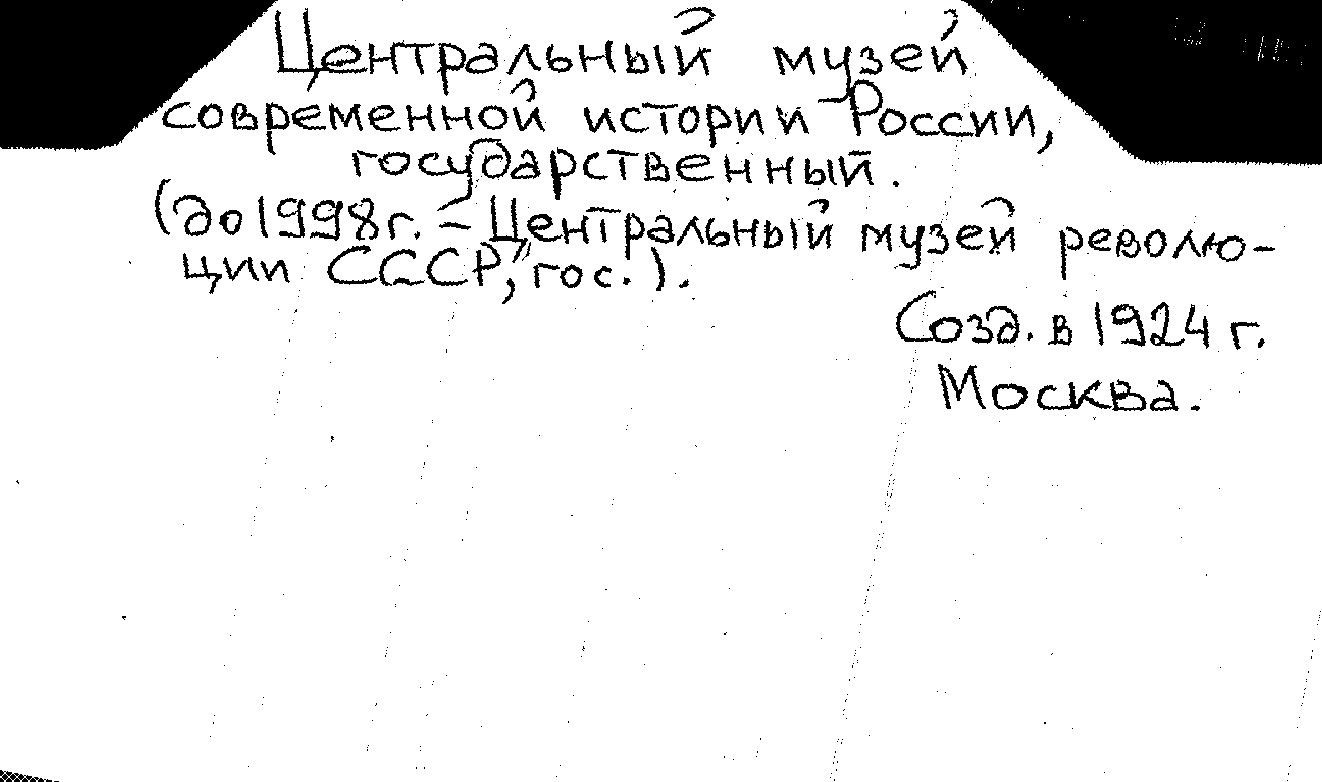 Центральный музей
современной истории России,
государственный.
(до 1998г. – Центральный музей револю-
ции СССР, гос.).
Созд. в 1924 г.
Москва.